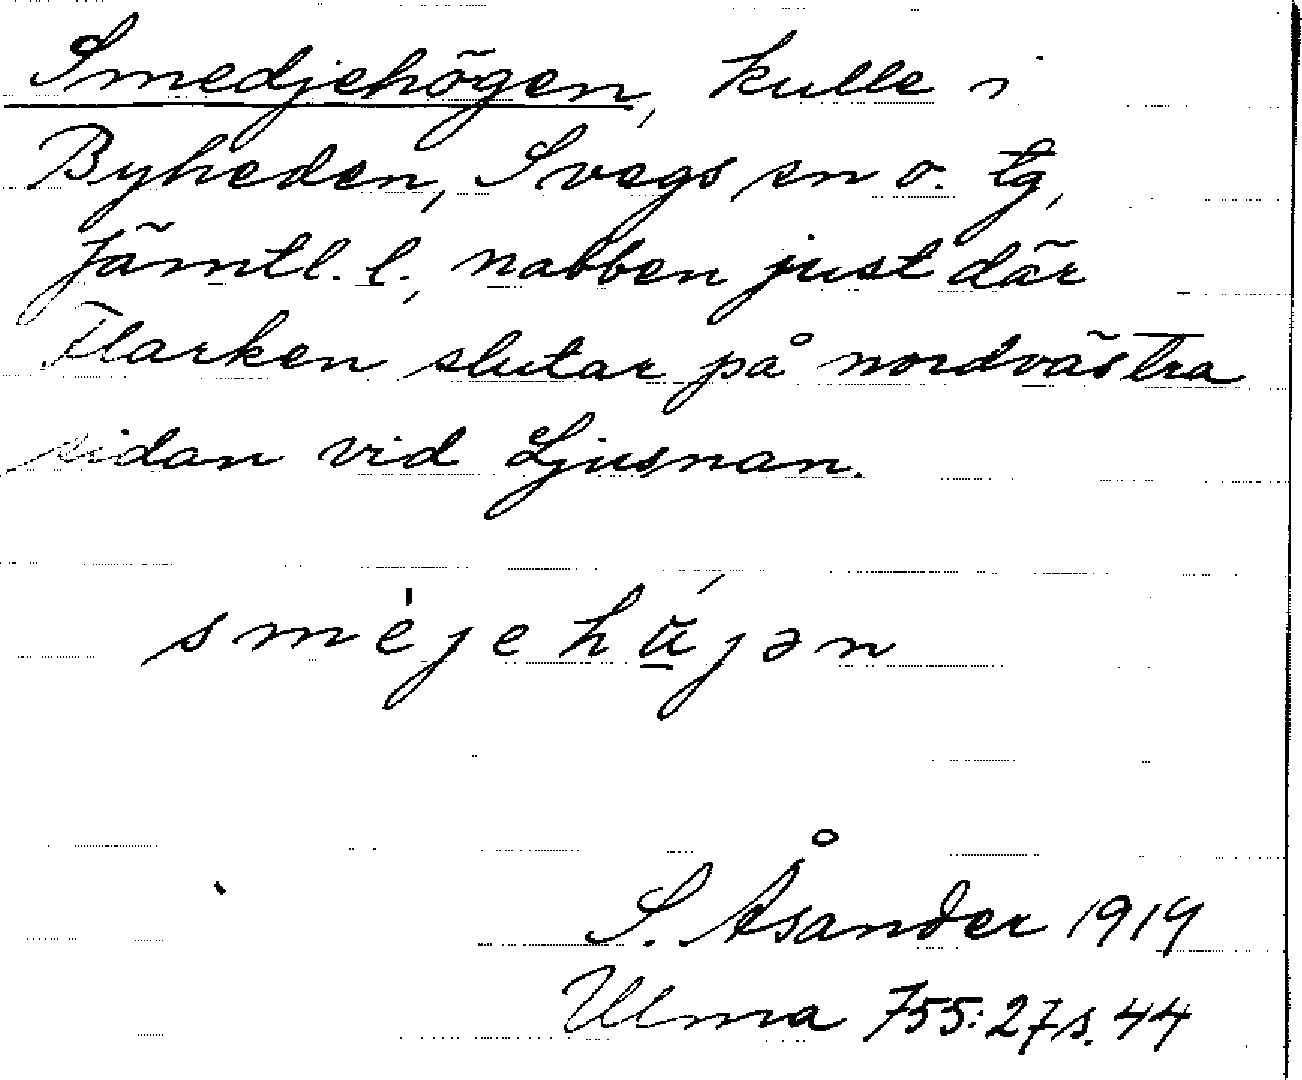 Smedjehögen, kulle i
Byheden, Svegs sn o. tg,
Jämtl. l., nabben just där
Flarken slutar på nordvästra
sidan vid Ljusnan.
smejehüjən
S. Åsander 1919
Ulma 755:27 s. 44